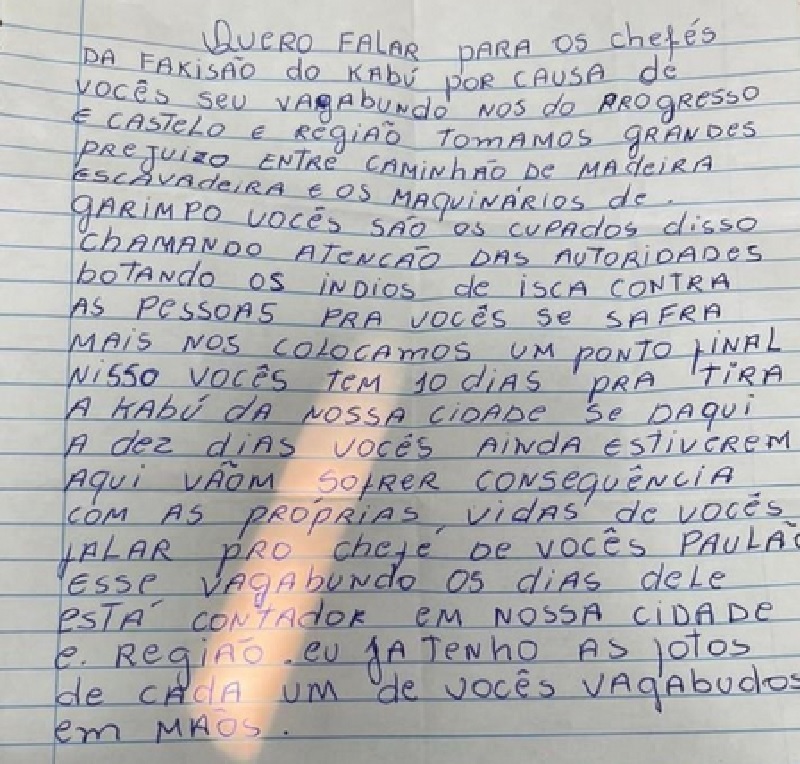 QUERO FALAR PARA OS chefés
DA FAKISÃO do KABÚ POR CAUSA de
VOCÊS SEU VAGABUNDO NOS do PROGRESSO
E CASTELO E REGIÃO TOMAMOS GRANDES
PREJUIZO ENTRE CAMINHÃO DE MAdeiRA
ESCAVAdeiRA E OS MAQUINÁRIOS de.
GARIMPO VOCÊS SÃO OS CUPADOS disso
CHAMANDO ATENCÃO DAS AUTORIDADES
bOTANDO OS ÍNDIOS de iSCA CONTRA
AS PESSOAS PRA VOCÊS SE SAFRA
MAIS NOS COLOCAMOS UM PONTO fINAL
NISSO VOCÊS TEM 10 diAS PRA TIRA
A KABÚ dA NOSSA CIDADE SE DAQUI
A dEZ diAS VOCÊS AINDA ESTIVEREM
AQUI VÃOM SOfRER CONSEQUÊNCIA
COM AS PRÓPRIAS VIDAS de VOCÊS
fALAR PRO chefé DE VOCÊS PAULÃO
ESSE VAGABUNDO OS diAS dELE
ESTÁ CONTADOR EM NOSSA CIDADE
e. REGIÃO. EU JA TENHO AS fOTOS
de CADA UM de VOCÊS VAGABUDOS
em MAÕS.